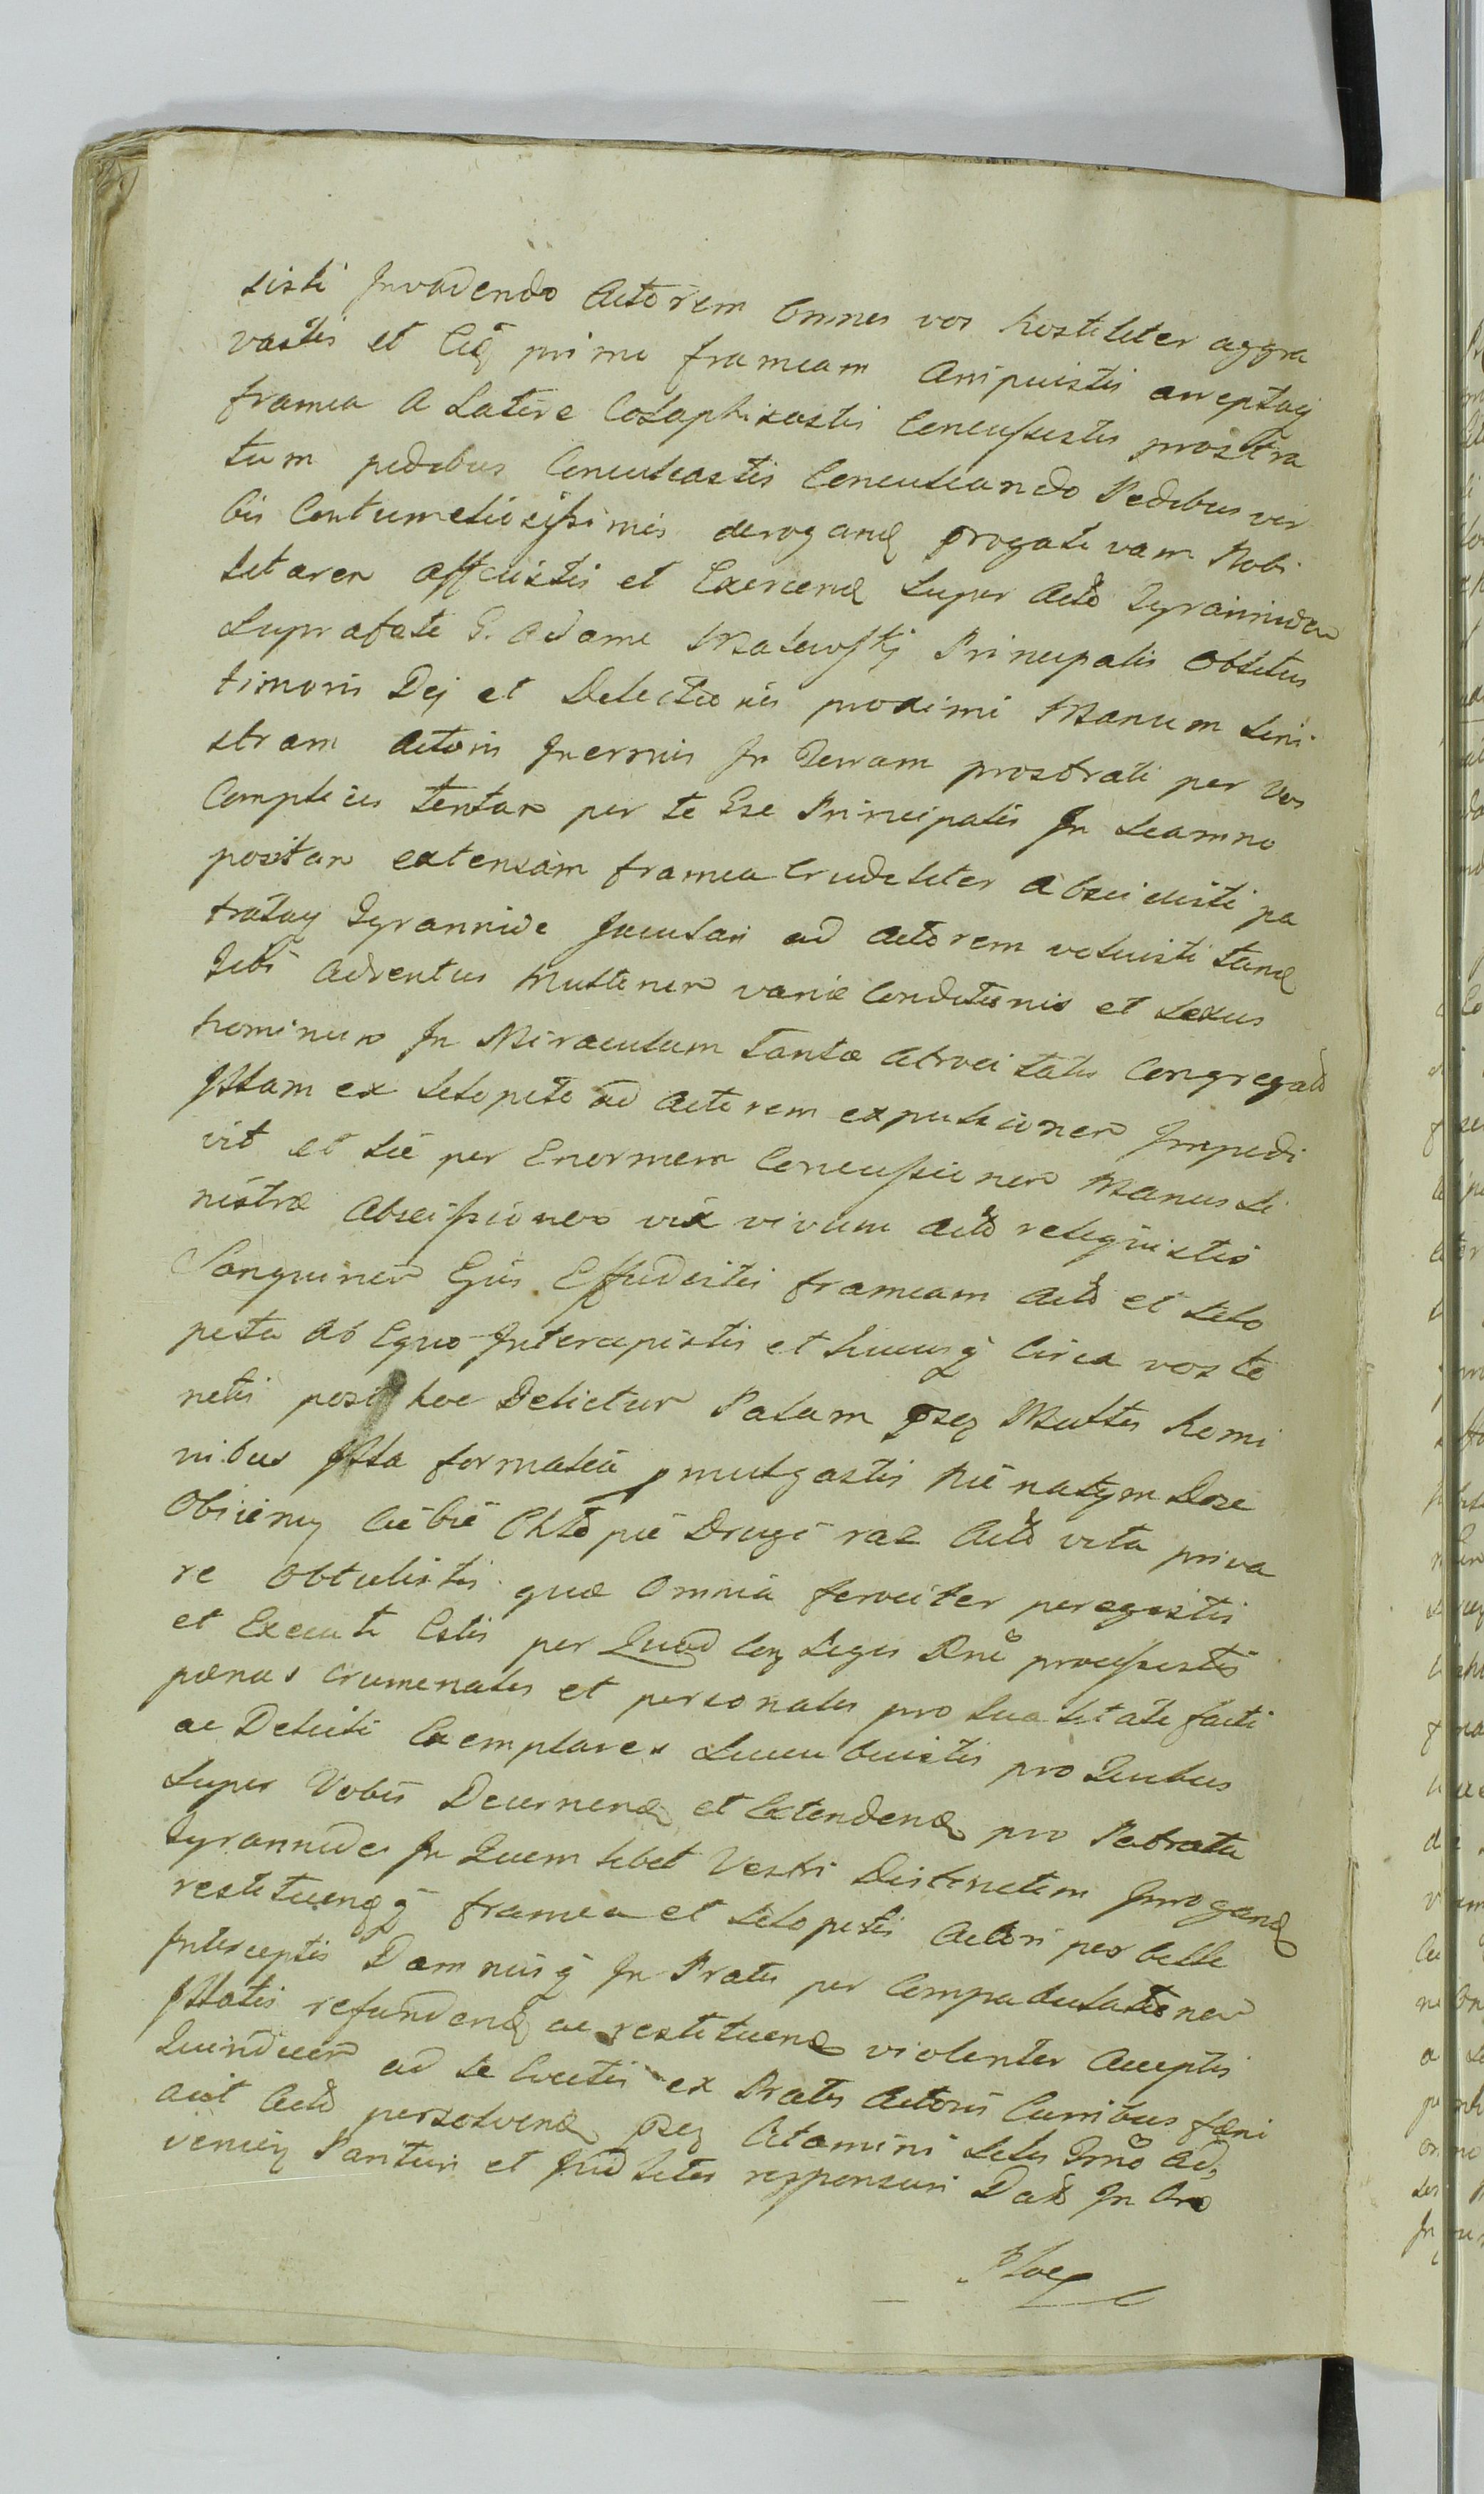 sisti Invadendo Actorem Omnes vos hostiliter aggra
vastis et Eidē primo frameam Arripuistis arreptaq
framea A Latere Colaphisastis Concussistis prostra
tum pedibus Conculcastis Conculcando Pedibus ver
bis Contumeliosissimis derogand progativam Nobi
litarem affecistis et Exercend super Acto Tyrannidem
Supra fate G. Adame Malewskj Principalis Oblitus
timoris Dej et Delectionis proximi Manum Sini
stram Actoris Inermis In Terram prostrati per vos
Complices tentam per te Ese Principalis In Scamno
positam extensam framea Crudeliter abscidisti pa
trataq Tyrannide Jaculari ad Actorem voluisti tand
Tibi Adventus Multorum variæ Conditionis et Sexus
hominum In Miraculum tantæ Atrocitatis Congregato
Istam ex Selopeto ad Actorem expulsionem Impedi
vit et Sic per Enormem Concussionem Manus Si
nistræ Abscissionem vix vivum Acto reliquistis
Sanguinem Ejus Effudistis frameam Acto et Selo
peta Ab Equo Intercepistis et hucusq Circa vos te
netis post hoc Delictum Palam Multis homi
nibus Ista formalia pmulgastis Nie natym Dose
Obieiemy Ciebie Chłopie Drugi raz Acto vita priva
re Obtulistis quæ Omnia ferociter peregistis
et Executi Estis per Quod Leges Dni processistis
pœnas crumenales et personales pro Sua litate facti
ac Delicti Exemplares Succubuistis pro Quibus
Super Vobis Decernend et Extendend pro Patrata
Tyrannide In Quem libet Vestri Distinctim Irrogand
restituendq framea et Selopetis Actori per
Interceptis Damnisq In Pratis per Compabulationem
Illatis refundend ac restituend violenter Acceptis
Quindecim ad te Evectis ex Pratis Actoris Curribus fœni
aut Acto persolvend Citamini
venieñ Parituri et Judlitēr responsuri Dat In Cro